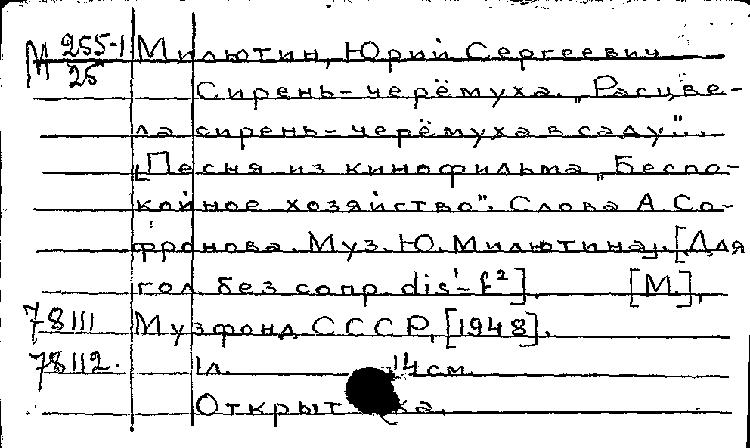 М 255-1/25 Милютин, Юрий Сергеевич
Сирень-черёмуха. „Расцве-
ла сирень-черёмуха в саду"...
[Песня из кинофильма „Беспо-
койное хозяйство". Слова А Со-
фронова. Муз. Ю. Милютина]. [Для
гол. без сопр. dis¹-f²]. [М.],
78111 Музфонд СССР, [1948].
78112. 1л. 14 см.
Открытка.